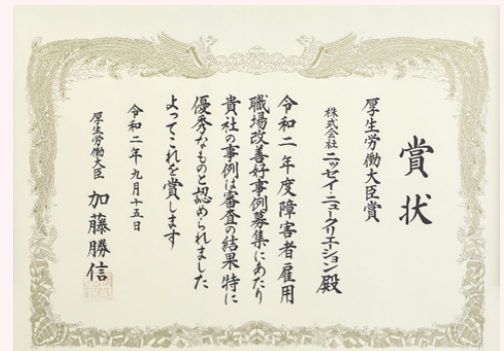 賞状
厚生労働大臣賞
株式会社ニッセイ・ニュークリエーション殿
令和二年度障害者雇用
職場改善好事例募集にあたり
貴社の事例は審査の結果特に
優秀なものと認められました
よってこれを賞します
令和二年九月十五日
厚生労働大臣 加藤勝信